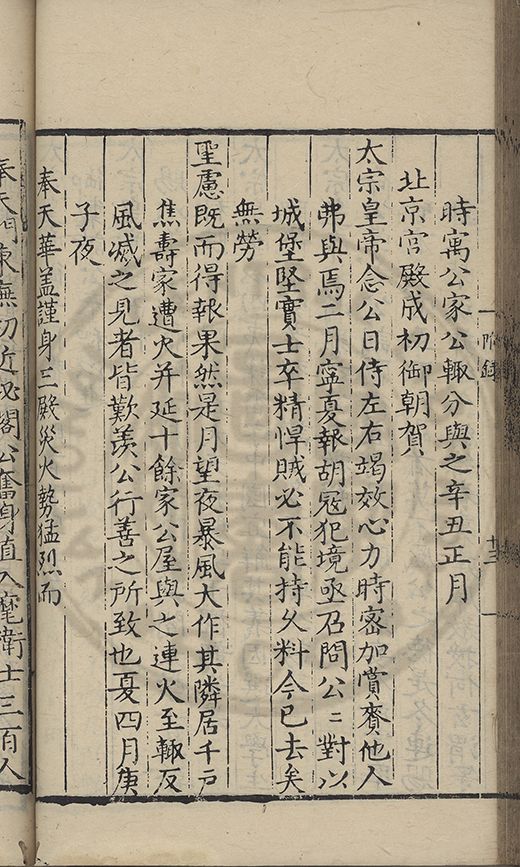 時寓公家公輙分與之辛丑正月
北京宮殿成初御朝賀
太宗皇帝念公日侍左右竭效心力時密加賞賚他人
弗與焉二月寧夏報胡寇犯境亟召問公〻對以
城堡堅實士卒精悍賊必不能持久料今已去矣
無勞
聖慮既而得報果然是月望夜暴風大作其隣居千戸
焦壽家遭火并延十餘家公屋與之連火至輙反
風滅之見者皆歎羡公行善之所致也夏四月庚
子夜
奉天華盖謹身三殿災火勢猛烈而
奉天門東廡切近祕閣公奮身直入麾衛士三百人
附録
十三